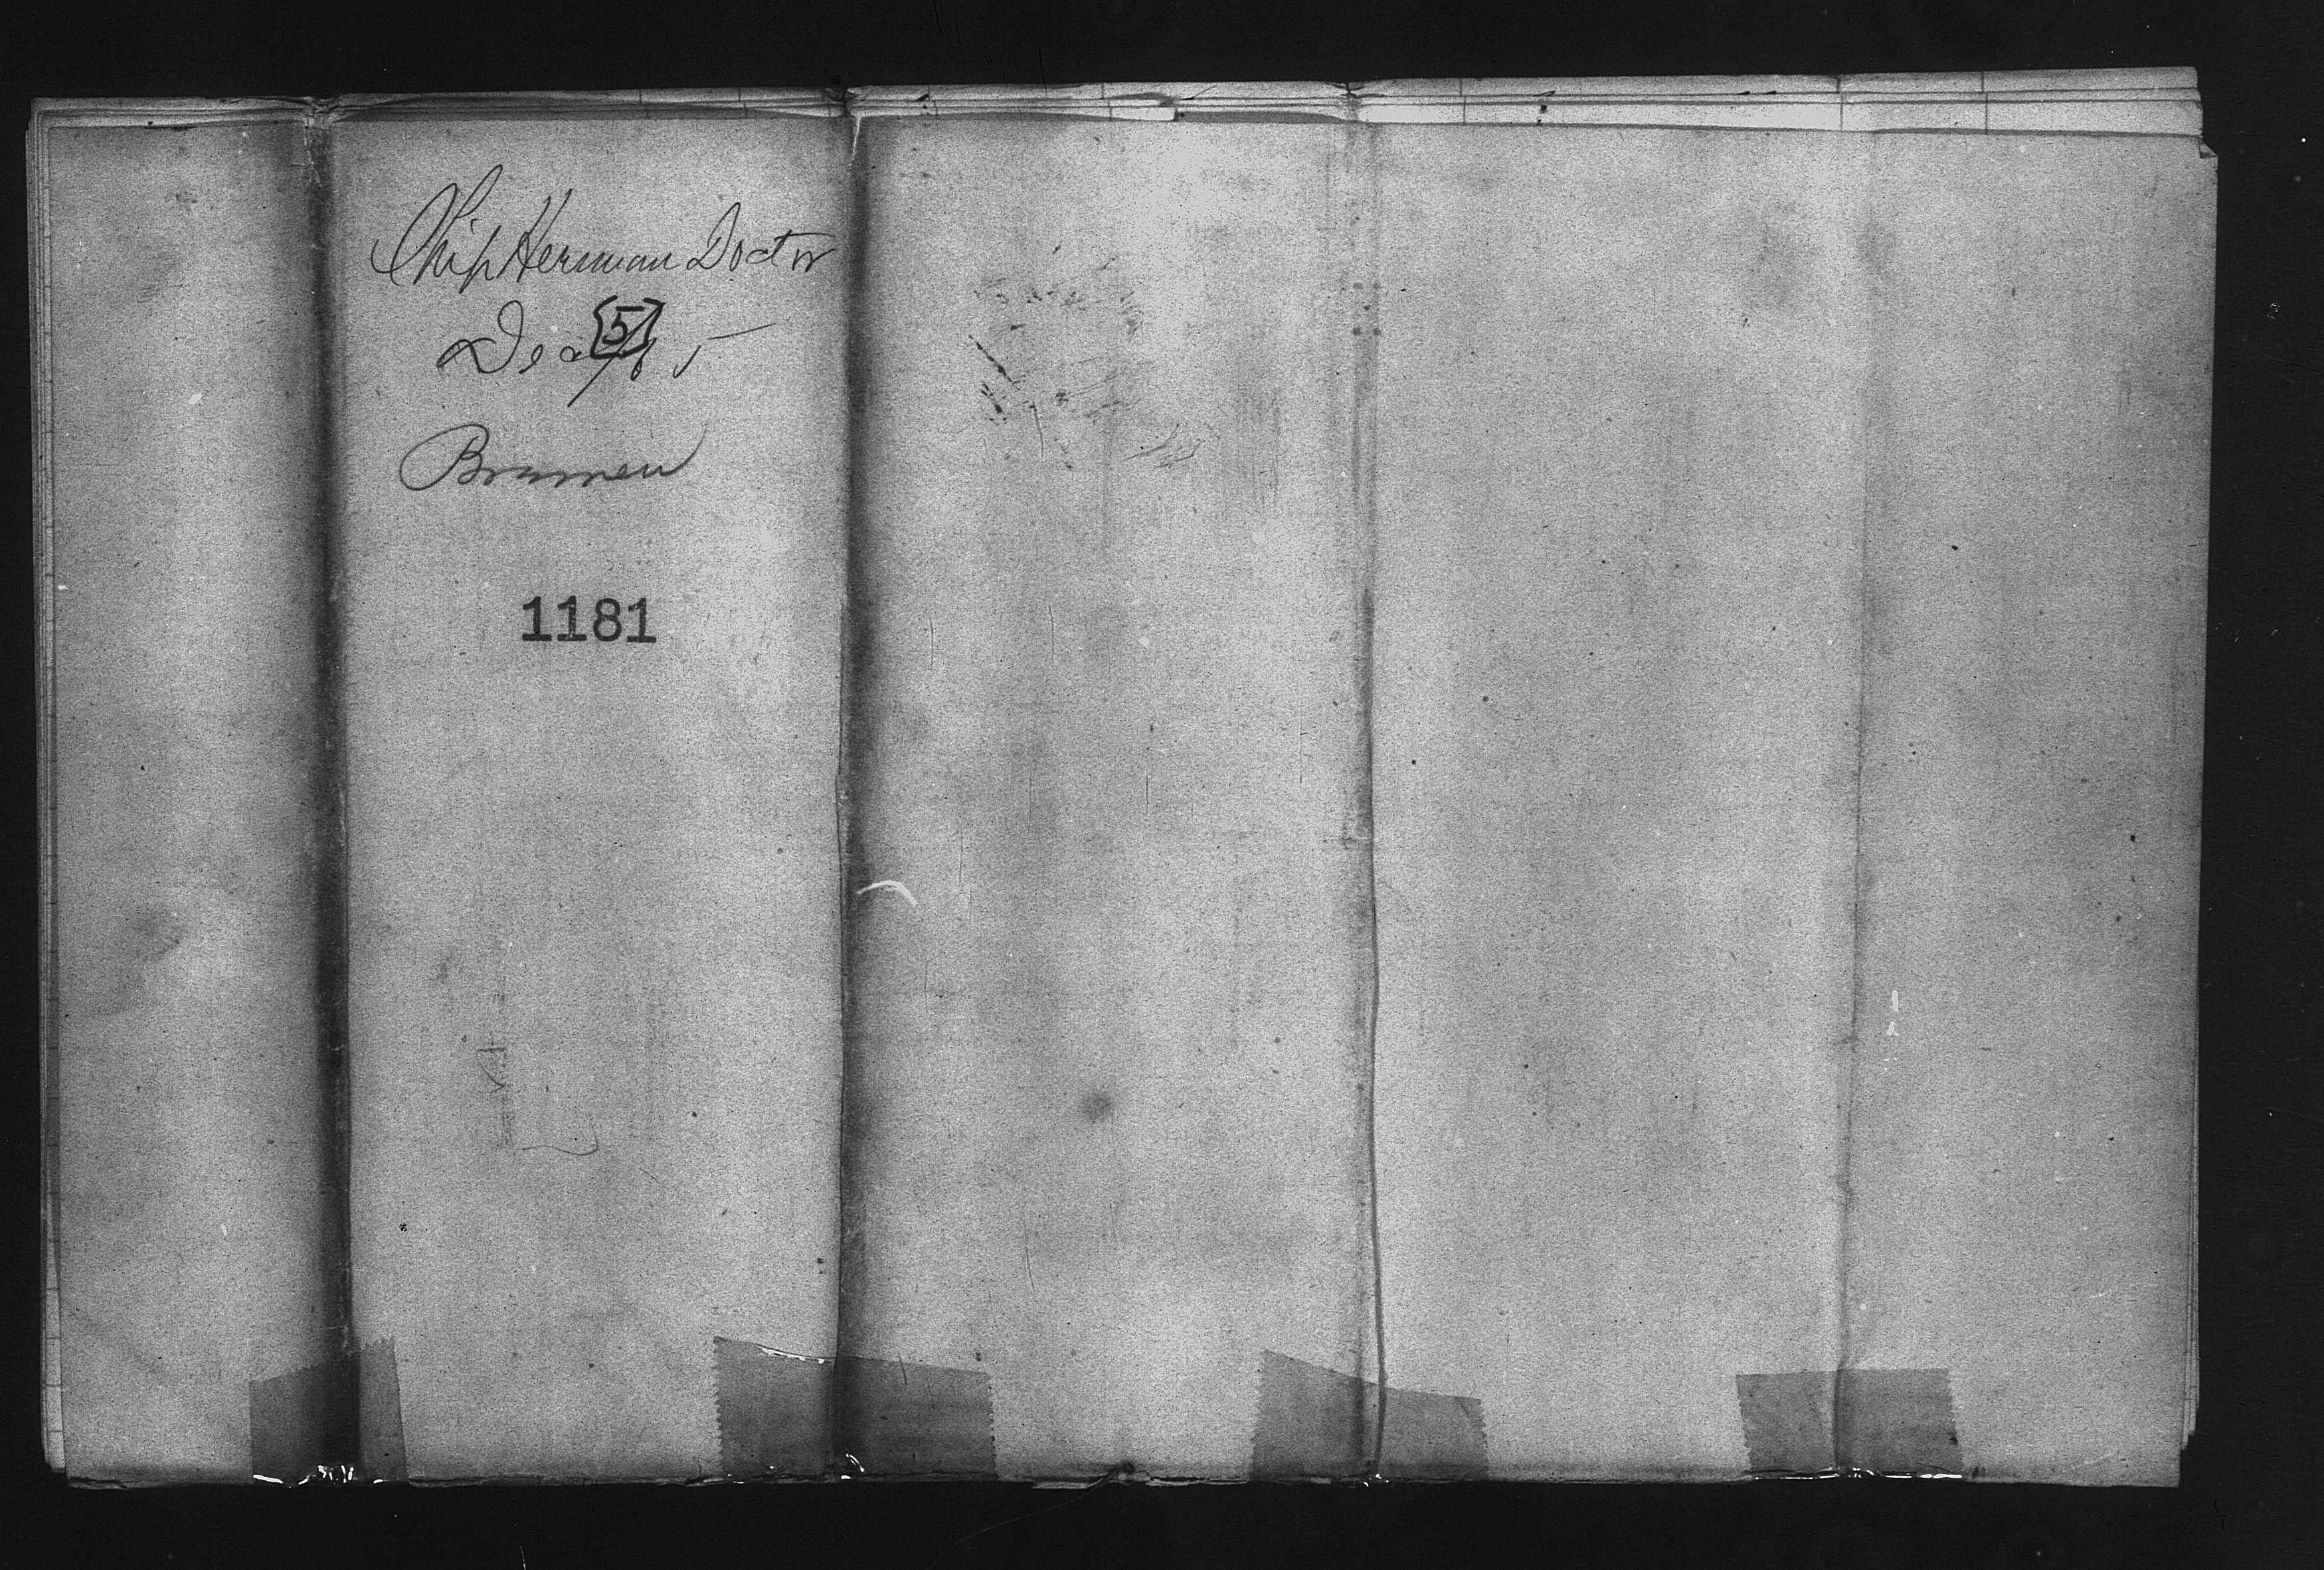 Ship Herman Doctor
[5]
Dec 4/65
Bremen
1181